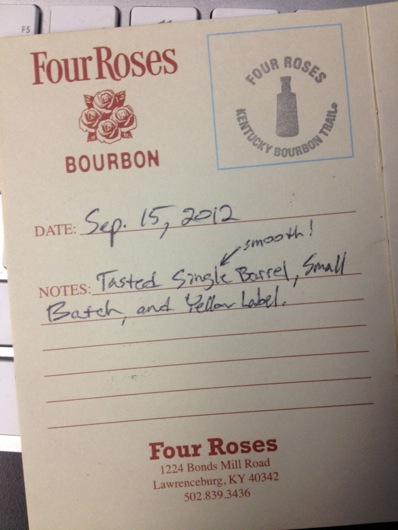 F5
Four Roses
BOURBON
FOUR ROSES
KENTUCKY BOURBON TRAIL®
DATE: Sep. 15, 2012
smooth!
NOTES: Tasted Single Barrel, Small
Batch, and Yellow Label.
Four Roses
1224 Bonds Mill Road
Lawrenceburg, KY 40342
502.839.3436